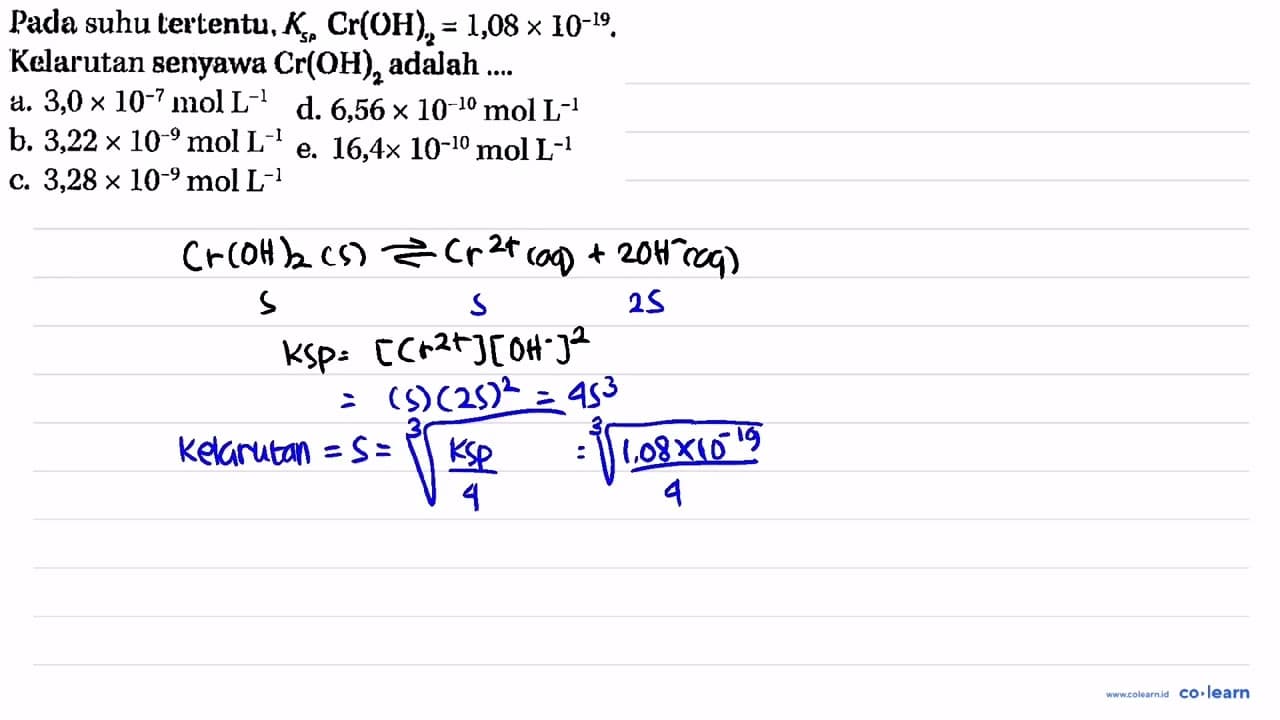 Pada suhu tertentu, Ksp Cr(OH)₂ = 1,08 × 10⁻¹⁹.
Kelarutan senyawa Cr(OH)₂ adalah ....
a. 3,0 × 10⁻⁷ mol L⁻¹ d. 6,56 × 10⁻¹⁰ mol L⁻¹
b. 3,22 × 10⁻⁹ mol L⁻¹ e. 16,4× 10⁻¹⁰ mol L⁻¹
c. 3,28 × 10⁻⁹ mol L⁻¹
Cr(OH)₂ (s) ⇌ Cr²⁺ (aq) + 2OH⁻(aq)
S S 2S
Ksp = [Cr²⁺][OH⁻]²
= (S)(2S)² = 4S³
Kelarutan = S = ³√(Ksp/4) = ³√(1.08×10⁻¹⁹/4)
www.colearn.id co·learn